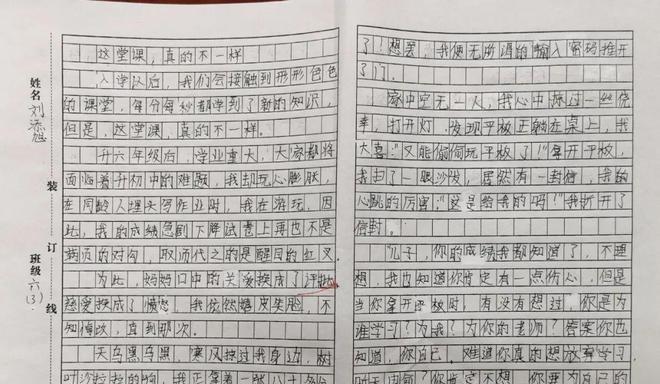 姓名 刘添旭
装
订
班级 六(3)
线
这堂课,真的不一样
入学以后,我们会接触到形形色色
的课堂,每分每秒都学到了新的知识,
但是,这堂课,真的不一样。
升六年级后,学业重大,大家都将
面临着升初中的难题,我却玩心膨胀,
在同龄人埋头写作业时,我在游玩,因
此,我的成绩急剧下降试卷上再也不是
满页的对勾,取而代之的是醒目的红叉
为此,妈妈口中的关爱换成了评批
慈爱换成了愤怒。我依然嬉皮笑脸,不
知悔改,直到那次。
天乌黑乌黑,寒风掠过我身边,树
叶沙拉拉的响,我正拿着一张八十
了!想罢,我便无所谓的输入密码推开
了门。
家中空无一人,我心中掠过一丝侥
幸,打开灯,发现平板正躺在桌上,我
大喜:"又能偷偷玩平板了!"拿开平板,
我扫了一眼沙发,居然有一封信,我的
心跳的厉害,"这是给我的吗!"我折开了
信封。
"儿子,你的成绩我都知道了,不理
想,我也知道你肯定有一点伤心,但是
当你拿开平板时,有没有想过,你是为
谁学习?为我?为你的老师?答案你也
知道,你自己。难道你真的想放弃学习
你肯定不想,你要为自己的